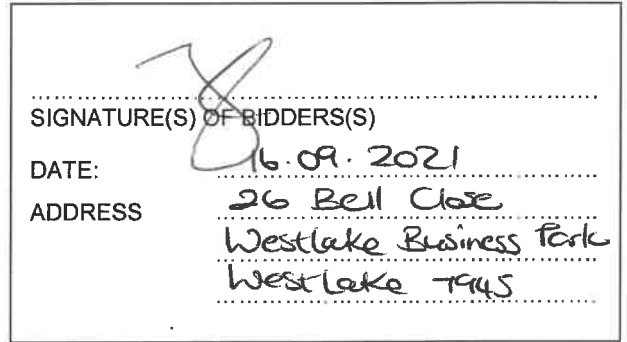 SIGNATURE(S) OF BIDDERS(S)
DATE: 16.09.2021
ADDRESS 26 Bell Close
Westlake Business Park
Westlake 7945